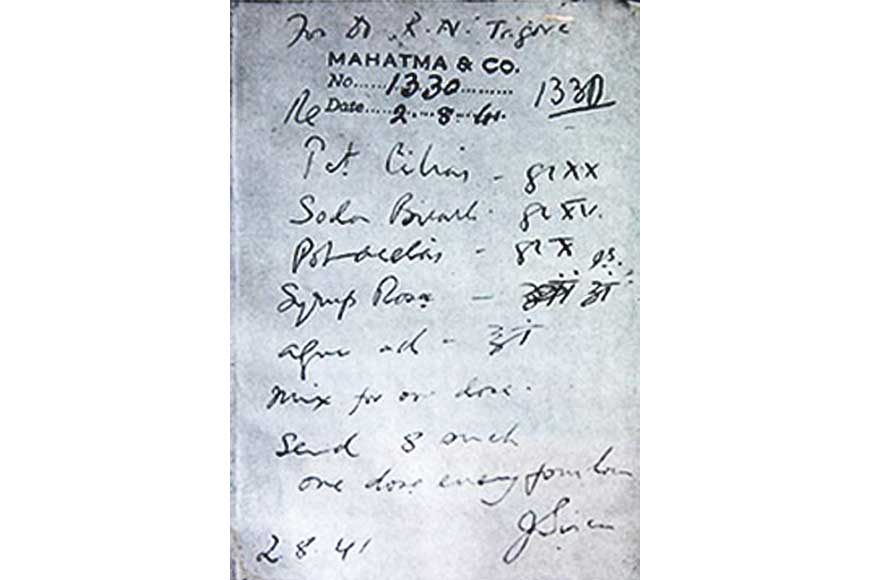 For Dr. R. N. Tagore
MAHATMA & CO.
No.....1330......... 1330
Re Date.....2...8...41.
Pot. Citras - gr XX
Soda Bicarb. gr XV.
Pot acetas - gr X
Syrup Rosa - ʒi
aqua ad - ℥i
Mix for one dose.
Send 8 such
one dose every four hours
2.8.41